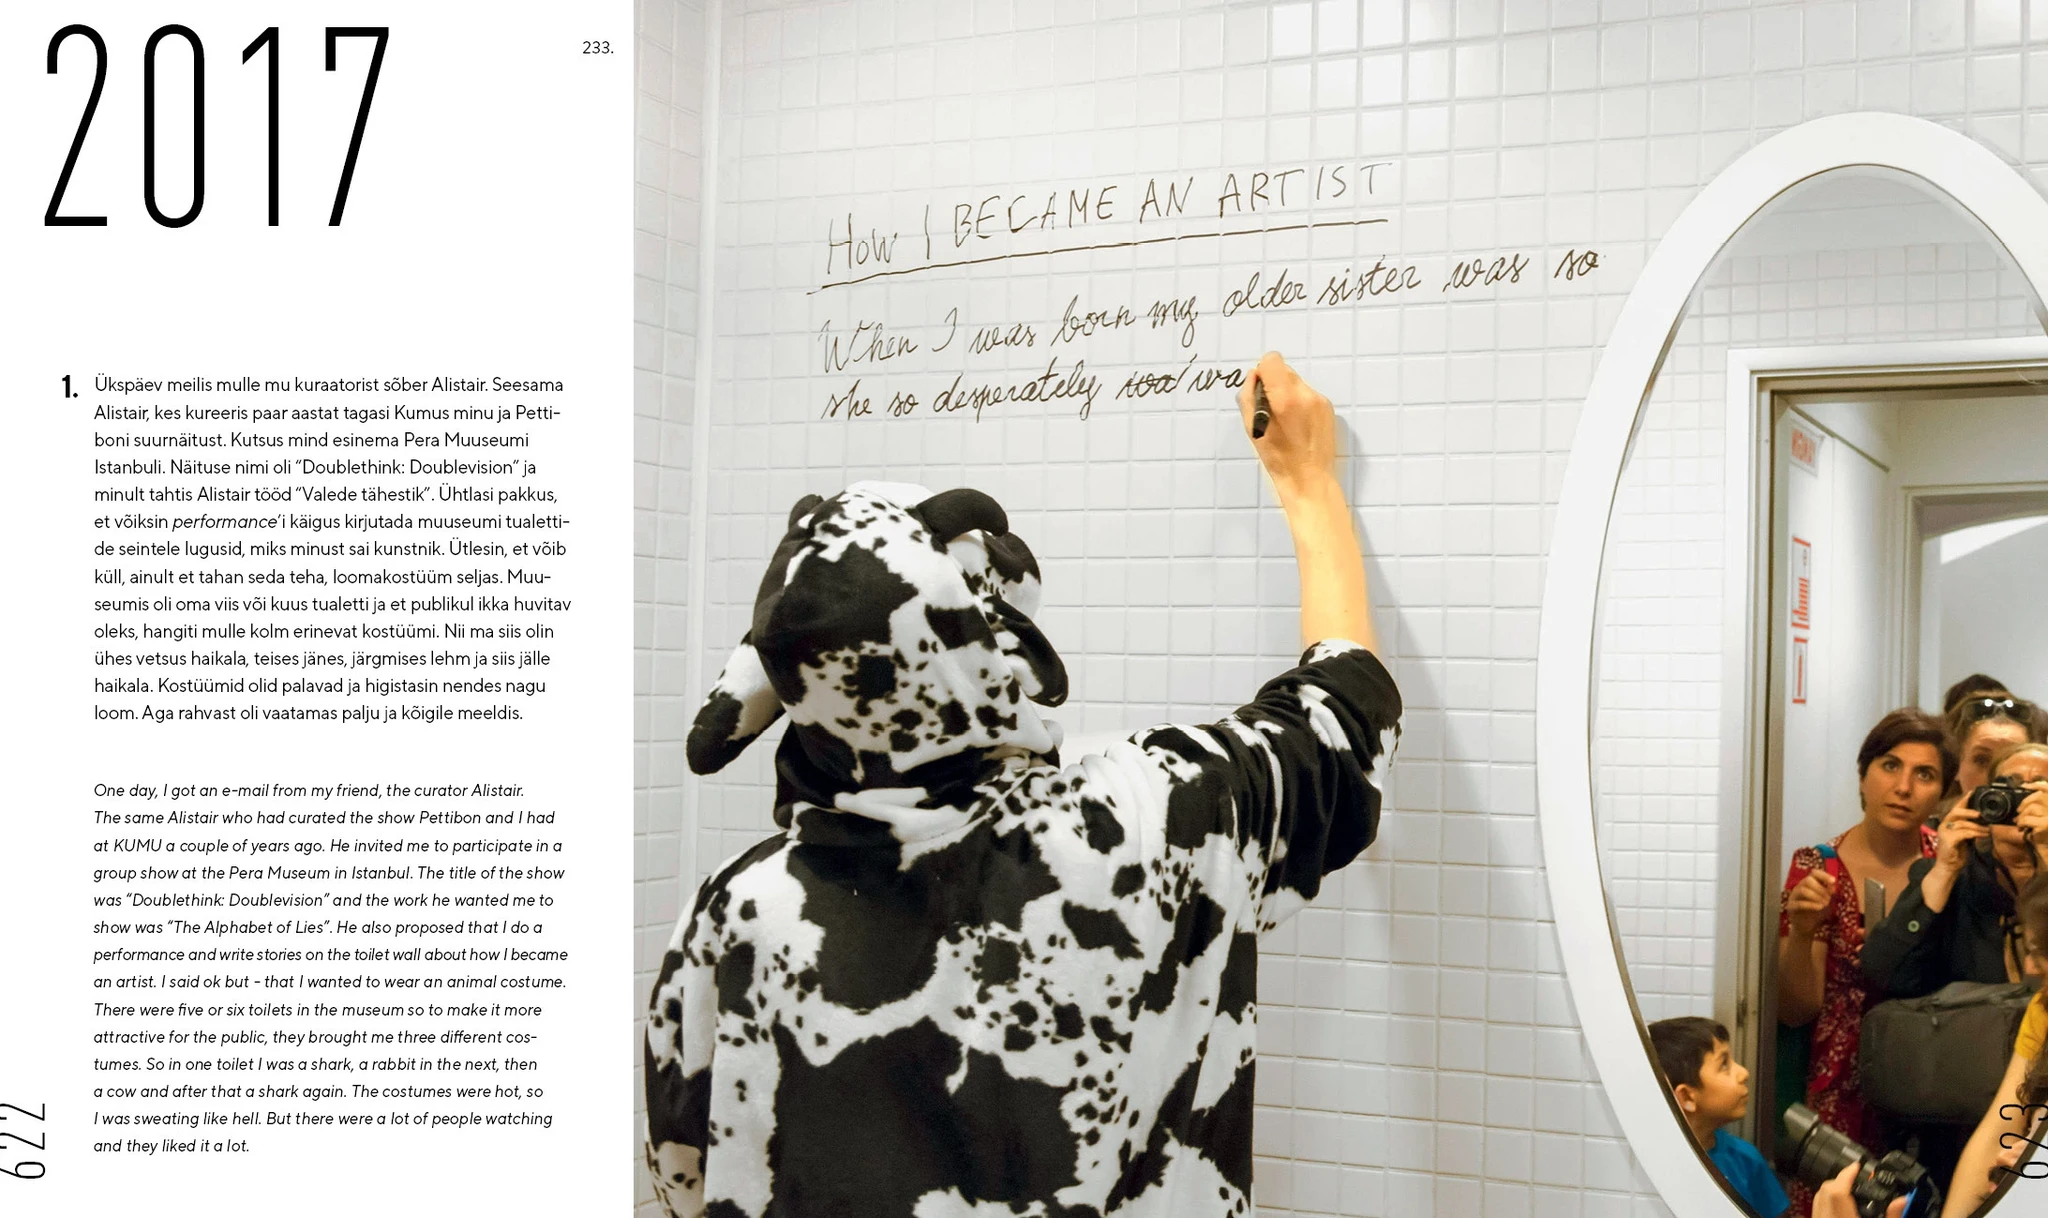 2017
233.
1. Ükspäev meilis mulle mu kuraatorist sõber Alistair. Seesama
Alistair, kes kureeris paar aastat tagasi Kumus minu ja Petti-
boni suurnäitust. Kutsus mind esinema Pera Muuseumi
Istanbuli. Näituse nimi oli “Doublethink: Doublevision” ja
minult tahtis Alistair tööd “Valede tähestik”. Ühtlasi pakkus,
et võiksin performance’i käigus kirjutada muuseumi tualetti-
de seintele lugusid, miks minust sai kunstnik. Ütlesin, et võib
küll, ainult et tahan seda teha, loomakostüüm seljas. Muu-
seumis oli oma viis või kuus tualetti ja et publikul ikka huvitav
oleks, hangiti mulle kolm erinevat kostüümi. Nii ma siis olin
ühes vetsus haikala, teises jänes, järgmises lehm ja siis jälle
haikala. Kostüümid olid palavad ja higistasin nendes nagu
loom. Aga rahvast oli vaatamas palju ja kõigile meeldis.
One day, I got an e-mail from my friend, the curator Alistair.
The same Alistair who had curated the show Pettibon and I had
at KUMU a couple of years ago. He invited me to participate in a
group show at the Pera Museum in Istanbul. The title of the show
was “Doublethink: Doublevision” and the work he wanted me to
show was “The Alphabet of Lies”. He also proposed that I do a
performance and write stories on the toilet wall about how I became
an artist. I said ok but - that I wanted to wear an animal costume.
There were five or six toilets in the museum so to make it more
attractive for the public, they brought me three different cos-
tumes. So in one toilet I was a shark, a rabbit in the next, then
a cow and after that a shark again. The costumes were hot, so
I was sweating like hell. But there were a lot of people watching
and they liked it a lot.
622
How I BECAME AN ARTIST
When I was born my older sister was so
she so desperately wa
623